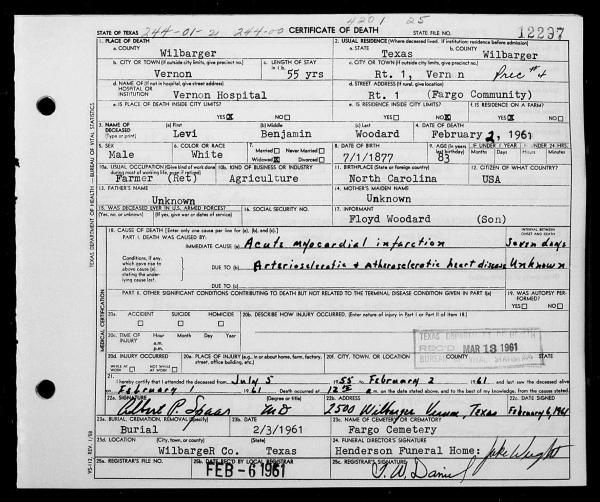 4201 25
STATE OF TEXAS 244-01-2 244-00 CERTIFICATE OF DEATH STATE FILE NO. 12297
1. PLACE OF DEATH
a. COUNTY
Wilbarger
2. USUAL RESIDENCE (Where deceased lived. If institution: residence before admission)
a. STATE Texas b. COUNTY Wilbarger
b. CITY OR TOWN (If outside city limits, give precinct no.)
Vernon
c. LENGTH OF STAY
in 1 b.
55 yrs
c. CITY OR TOWN (If outside city limits, give precinct no.)
Rt. 1, Vern n Prec #4
d. NAME OF (If not in hospital, give street address)
HOSPITAL OR
INSTITUTION
Vernon Hospital
d. STREET ADDRESS (If rural, give location)
Rt. 1 (Fargo Community)
e. IS PLACE OF DEATH INSIDE CITY LIMITS?
YES X NO
e. IS RESIDENCE INSIDE CITY LIMITS?
YES NO X
f. IS RESIDENCE ON A FARM?
YES X NO
3. NAME OF
DECEASED
(Type or print)
(a) First
Levi
(b) Middle
Benjamin
(c) Last
Woodard
4. DATE OF DEATH
February 2, 1961
5. SEX
Male
6. COLOR OR RACE
White
7. Married Never Married
Widowed X Divorced
8. DATE OF BIRTH
7/1/1877
9. AGE (In years
last birthday)
83
IF UNDER 1 YEAR IF UNDER 24 HRS.
10a. USUAL OCCUPATION (Give kind of work done
during most of working life, even if retired)
Farmer (Ret)
10b. KIND OF BUSINESS OR INDUSTRY
Agriculture
11. BIRTHPLACE (State or foreign country)
North Carolina
12. CITIZEN OF WHAT COUNTRY?
USA
13. FATHER'S NAME
Unknown
14. MOTHER'S MAIDEN NAME
Unknown
15. WAS DECEASED EVER IN U.S. ARMED FORCES?
(Yes, no, or unknown) (If yes, give war or dates of service)
16. SOCIAL SECURITY NO.
17. INFORMANT
Floyd Woodard (Son)
18. CAUSE OF DEATH (Enter only one cause per line for (a), (b), and (c).)
PART I. DEATH WAS CAUSED BY:
INTERVAL BETWEEN
ONSET AND DEATH
IMMEDIATE CAUSE (a) Acute myocardial infarction Seven days
Conditions, if any,
which gave rise to
above cause (a),
stating the under-
lying cause last.
DUE TO (b) Arteriosclerotic & atherosclerotic heart disease Unknown
DUE TO (c)
PART II. OTHER SIGNIFICANT CONDITIONS CONTRIBUTING TO DEATH BUT NOT RELATED TO THE TERMINAL DISEASE CONDITION GIVEN IN PART I(a)
19. WAS AUTOPSY PER-
FORMED?
YES NO
20a. ACCIDENT SUICIDE HOMICIDE
20b. DESCRIBE HOW INJURY OCCURRED. (Enter nature of injury in Part I or Part II of item 18.)
20c. TIME OF
INJURY
Hour Month Day Year
a.m.
p.m.
TEXAS DEPARTMENT OF HEALTH
REC'D MAR 13 1961
BUREAU OF VITAL STATISTICS
20d. INJURY OCCURRED
WHILE AT WORK NOT WHILE AT WORK
20e. PLACE OF INJURY (e.g., in or about home, farm, factory,
street, office building, etc.)
20f. CITY, TOWN, OR LOCATION COUNTY STATE
21. I hereby certify that I attended the deceased from July 5 1955 to February 2 1961 and last saw the deceased alive
on February 1 1961 Death occurred at m. on the date stated above, and to the best of my knowledge, from the causes stated.
22a. SIGNATURE
M D
22b. ADDRESS
2500 Wilbarger Vernon, Texas
22c. DATE SIGNED
February 6, 1961
23a. BURIAL, CREMATION, REMOVAL (Specify)
Burial
23b. DATE
2/3/1961
23c. NAME OF CEMETERY OR CREMATORY
Fargo Cemetery
23d. LOCATION (City, town, or county) (State)
WilbargeR Co. Texas
24. FUNERAL DIRECTOR'S SIGNATURE
Henderson Funeral Home: Jake Wright
25a. REGISTRAR'S FILE NO.
25b. DATE REC'D BY LOCAL REGISTRAR
FEB - 6 1961
25c. REGISTRAR'S SIGNATURE
TEXAS DEPARTMENT OF HEALTH — BUREAU OF VITAL STATISTICS
MEDICAL CERTIFICATION
VS-112 REV. 1/58